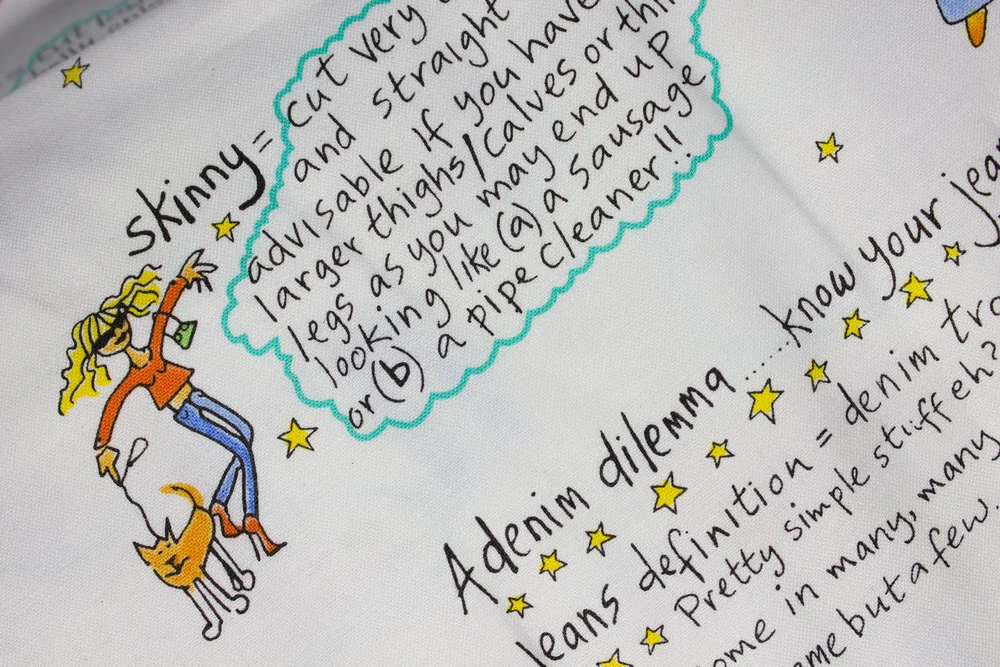 skinny = cut very
and straight
advisable if you have
larger thighs/calves or thin
legs as you may end up
looking like (a) a sausage
or (b) a pipe cleaner!!
A denim dilemma ......know your jea
jeans definition = denim tro
Pretty simple stuff eh?
ome in many, many
eme but a few.